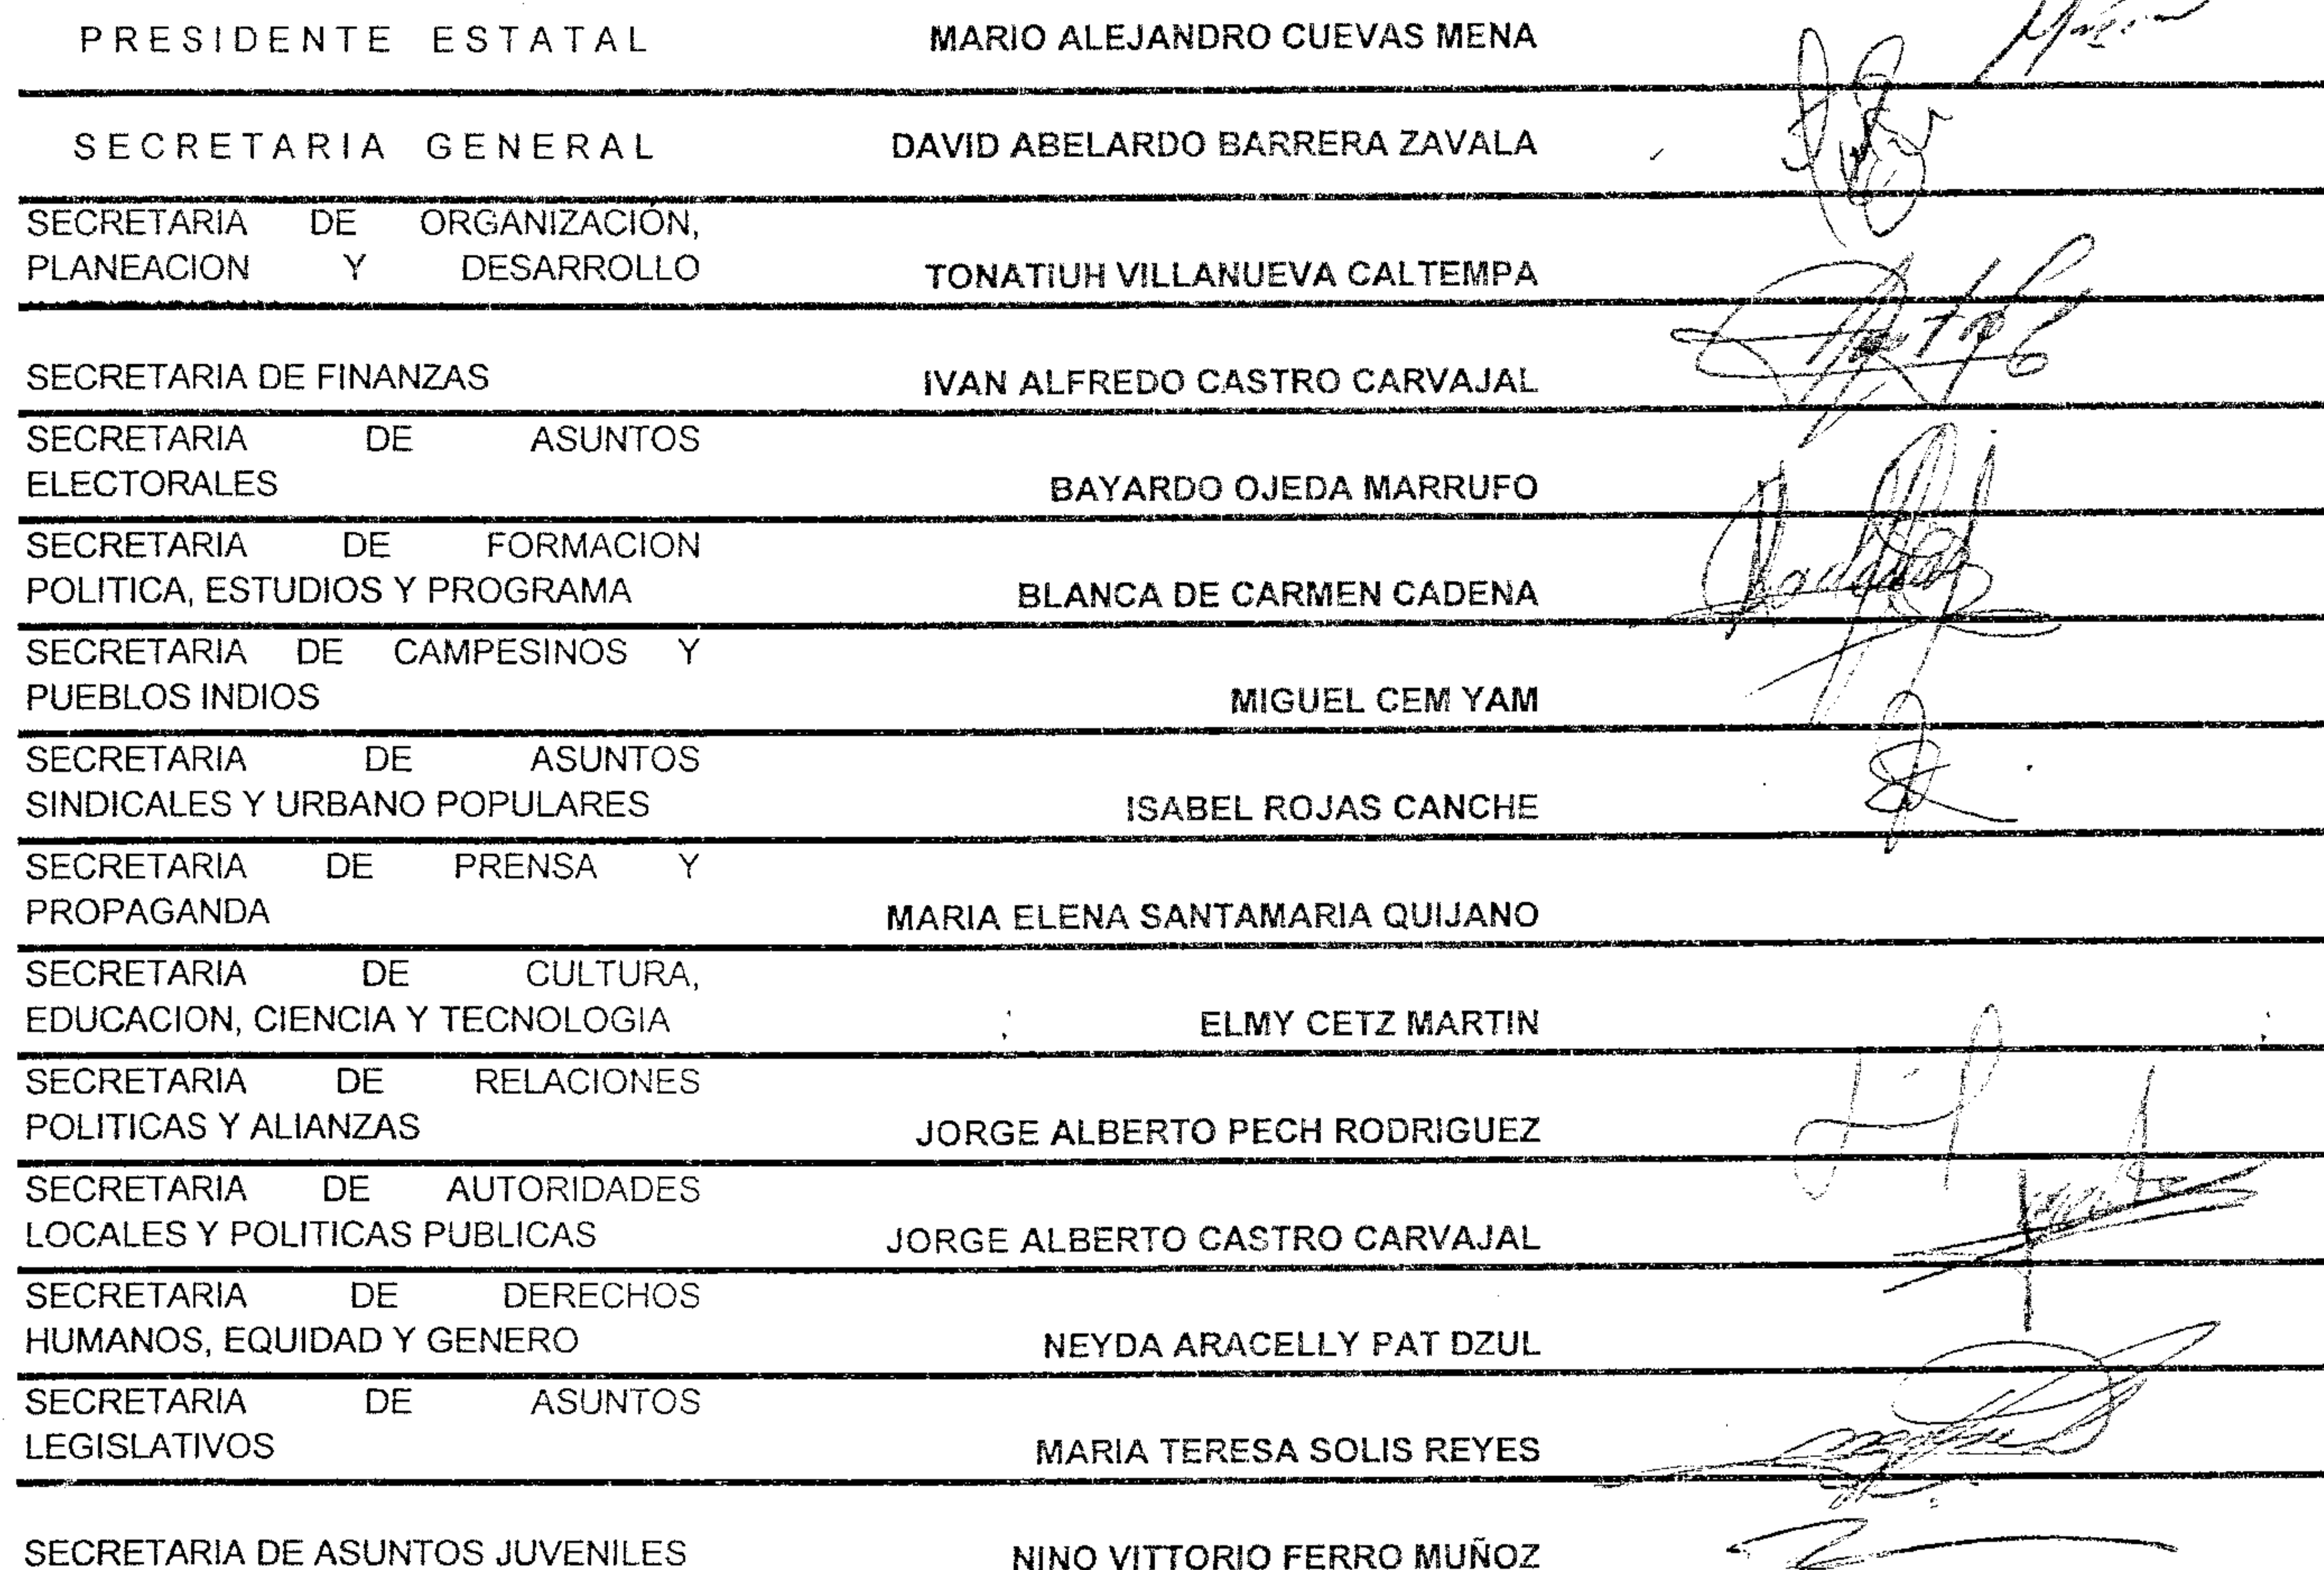 PRESIDENTE ESTATAL MARIO ALEJANDRO CUEVAS MENA
SECRETARIA GENERAL DAVID ABELARDO BARRERA ZAVALA
SECRETARIA DE ORGANIZACIÓN,
PLANEACION Y DESARROLLO TONATIUH VILLANUEVA CALTEMPA
SECRETARIA DE FINANZAS IVAN ALFREDO CASTRO CARVAJAL
SECRETARIA DE ASUNTOS
ELECTORALES BAYARDO OJEDA MARRUFO
SECRETARIA DE FORMACION
POLITICA, ESTUDIOS Y PROGRAMA BLANCA DE CARMEN CADENA
SECRETARIA DE CAMPESINOS Y
PUEBLOS INDIOS MIGUEL CEM YAM
SECRETARIA DE ASUNTOS
SINDICALES Y URBANO POPULARES ISABEL ROJAS CANCHE
SECRETARIA DE PRENSA Y
PROPAGANDA MARIA ELENA SANTAMARIA QUIJANO
SECRETARIA DE CULTURA,
EDUCACION, CIENCIA Y TECNOLOGIA ELMY CETZ MARTIN
SECRETARIA DE RELACIONES
POLITICAS Y ALIANZAS JORGE ALBERTO PECH RODRIGUEZ
SECRETARIA DE AUTORIDADES
LOCALES Y POLITICAS PUBLICAS JORGE ALBERTO CASTRO CARVAJAL
SECRETARIA DE DERECHOS
HUMANOS, EQUIDAD Y GENERO NEYDA ARACELLY PAT DZUL
SECRETARIA DE ASUNTOS
LEGISLATIVOS MARIA TERESA SOLIS REYES
SECRETARIA DE ASUNTOS JUVENILES NINO VITTORIO FERRO MUÑOZ